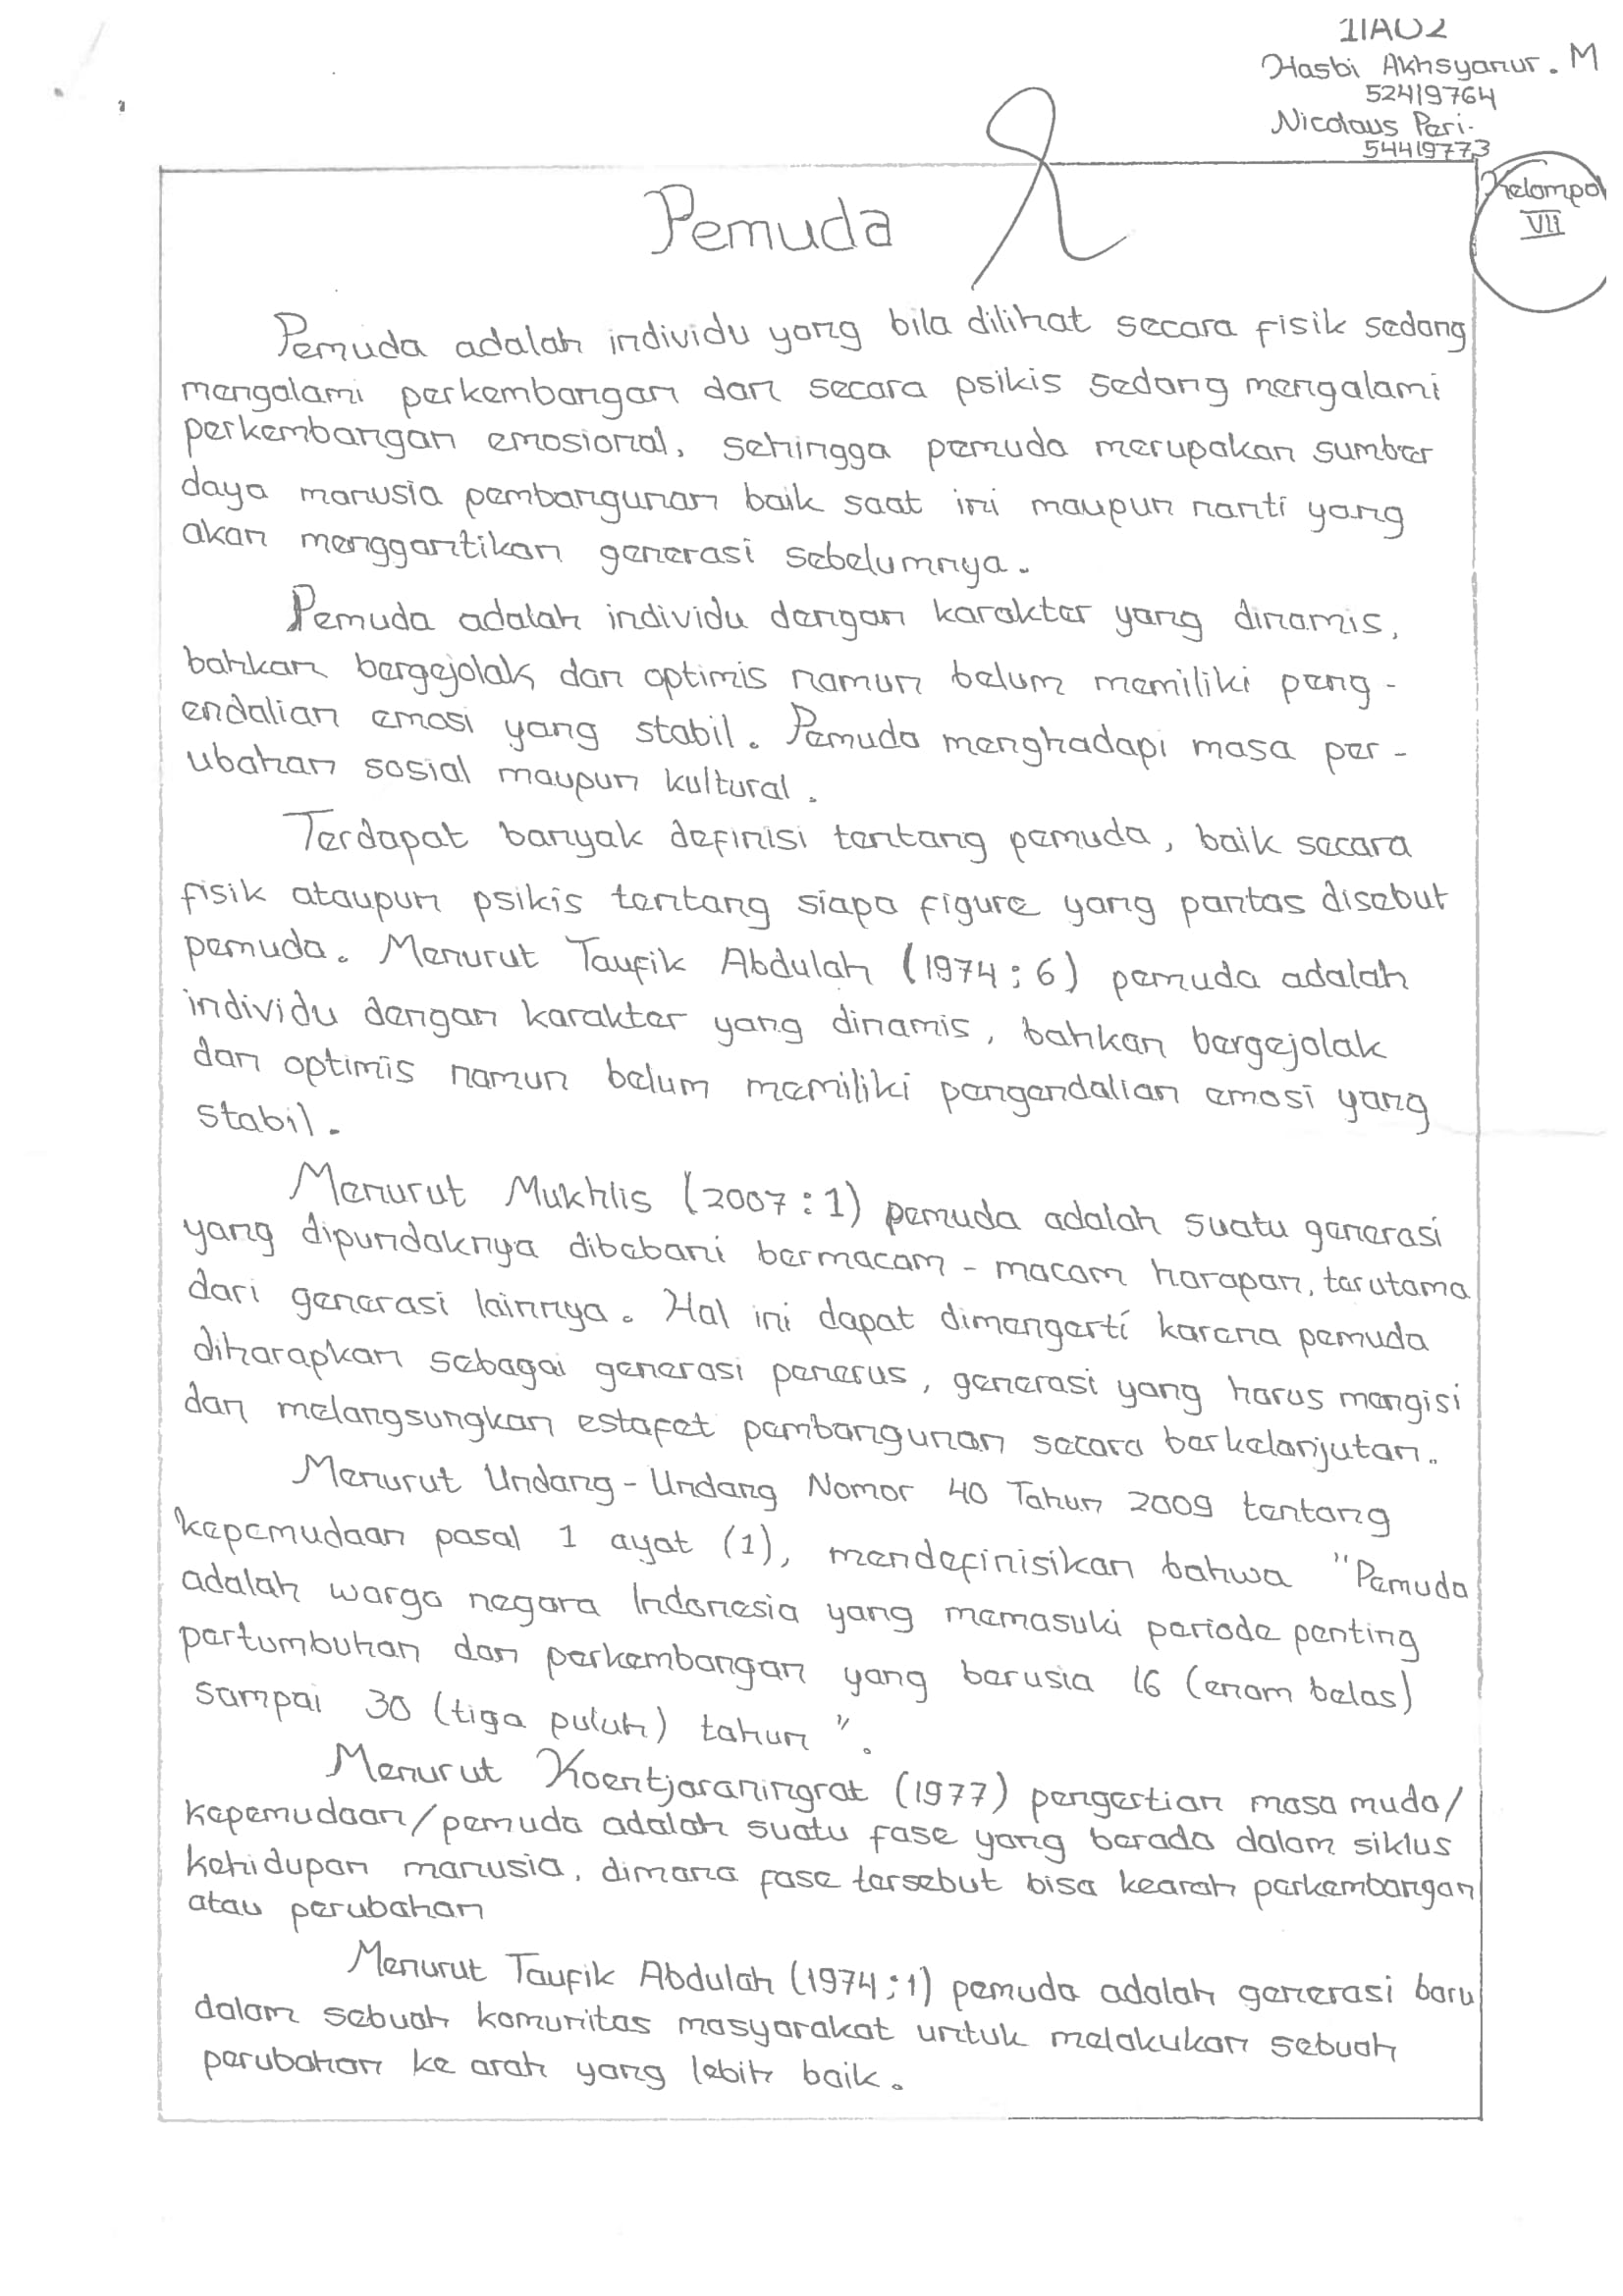 1IA02
Hasbi Akhsyanur. M
52419764
Nicolaus Peri.
54419773
Kelompok
VII
Pemuda
Pemuda adalah individu yang bila dilihat secara fisik sedang
mengalami perkembangan dan secara psikis sedang mengalami
perkembangan emosional, sehingga pemuda merupakan sumber
daya manusia pembangunan baik saat ini maupun nanti yang
akan menggantikan generasi sebelumnya.
Pemuda adalah individu dengan karakter yang dinamis,
bahkan bergejolak dan optimis namun belum memiliki peng-
endalian emosi yang stabil. Pemuda menghadapi masa per-
ubahan sosial maupun kultural.
Terdapat banyak definisi tentang pemuda, baik secara
fisik ataupun psikis tentang siapa figure yang pantas disebut
pemuda. Menurut Taufik Abdulah (1974 ; 6) pemuda adalah
individu dengan karakter yang dinamis, bahkan bergejolak
dan optimis namun belum memiliki pengendalian emosi yang
stabil.
Menurut Mukhlis (2007 : 1) pemuda adalah suatu generasi
yang dipundaknya dibebani bermacam - macam harapan, terutama
dari generasi lainnya. Hal ini dapat dimengerti karena pemuda
diharapkan sebagai generasi penerus, generasi yang harus mengisi
dan melangsungkan estafet pembangunan secara berkelanjutan..
Menurut Undang - Undang Nomor 40 Tahun 2009 tentang
kepemudaan pasal 1 ayat (1), mendefinisikan bahwa "Pemuda
adalah warga negara Indonesia yang memasuki periode penting
pertumbuhan dan perkembangan yang berusia 16 (enam belas)
sampai 30 (tiga puluh) tahun ".
Menurut Koentjaraningrat (1977) pengertian masa muda/
kepemudaan/pemuda adalah suatu fase yang berada dalam siklus
kehidupan manusia, dimana fase tersebut bisa kearah perkembangan
atau perubahan
Menurut Taufik Abdulah (1974 ; 1) pemuda adalah generasi baru
dalam sebuah komunitas masyarakat untuk melakukan sebuah
perubahan ke arah yang lebih baik.